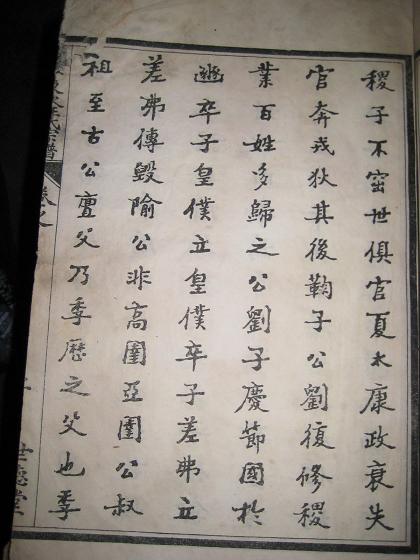 稷子不窋世俱官夏太康政衰失
官奔戎狄其後鞠子公劉復修稷
業百姓多歸之公劉子慶節國於
邠卒子皇僕立皇僕卒子差弗立
差弗傳毀隃公非高圉亞圉公叔
祖至古公亶父乃季歷之父也季
氏宗譜
卷之
世德堂